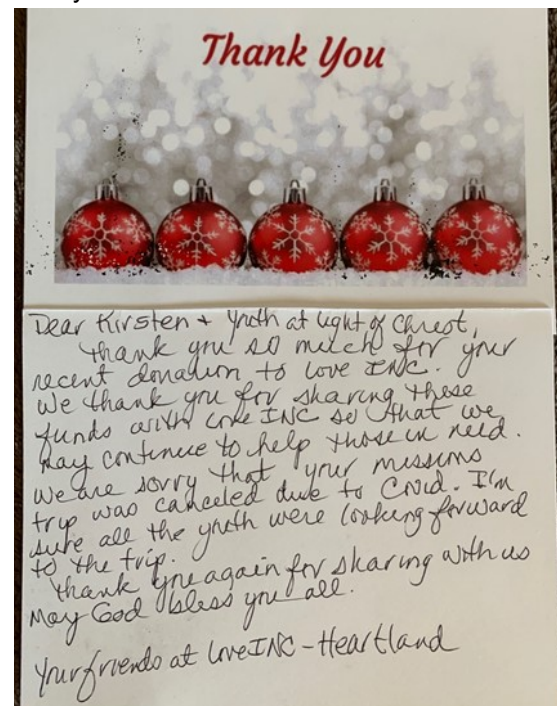 Thank You
Dear Kirsten + Youth at Light of Christ,
Thank you so much for your
recent donation to Love INC.
We thank you for sharing these
funds with Love INC so that we
may continue to help those in need.
We are sorry that your missions
trip was canceled due to Covid. I'm
sure all the youth were looking forward
to the trip.
Thank you again for sharing with us
May God bless you all.
Your friends at Love INC - Heartland